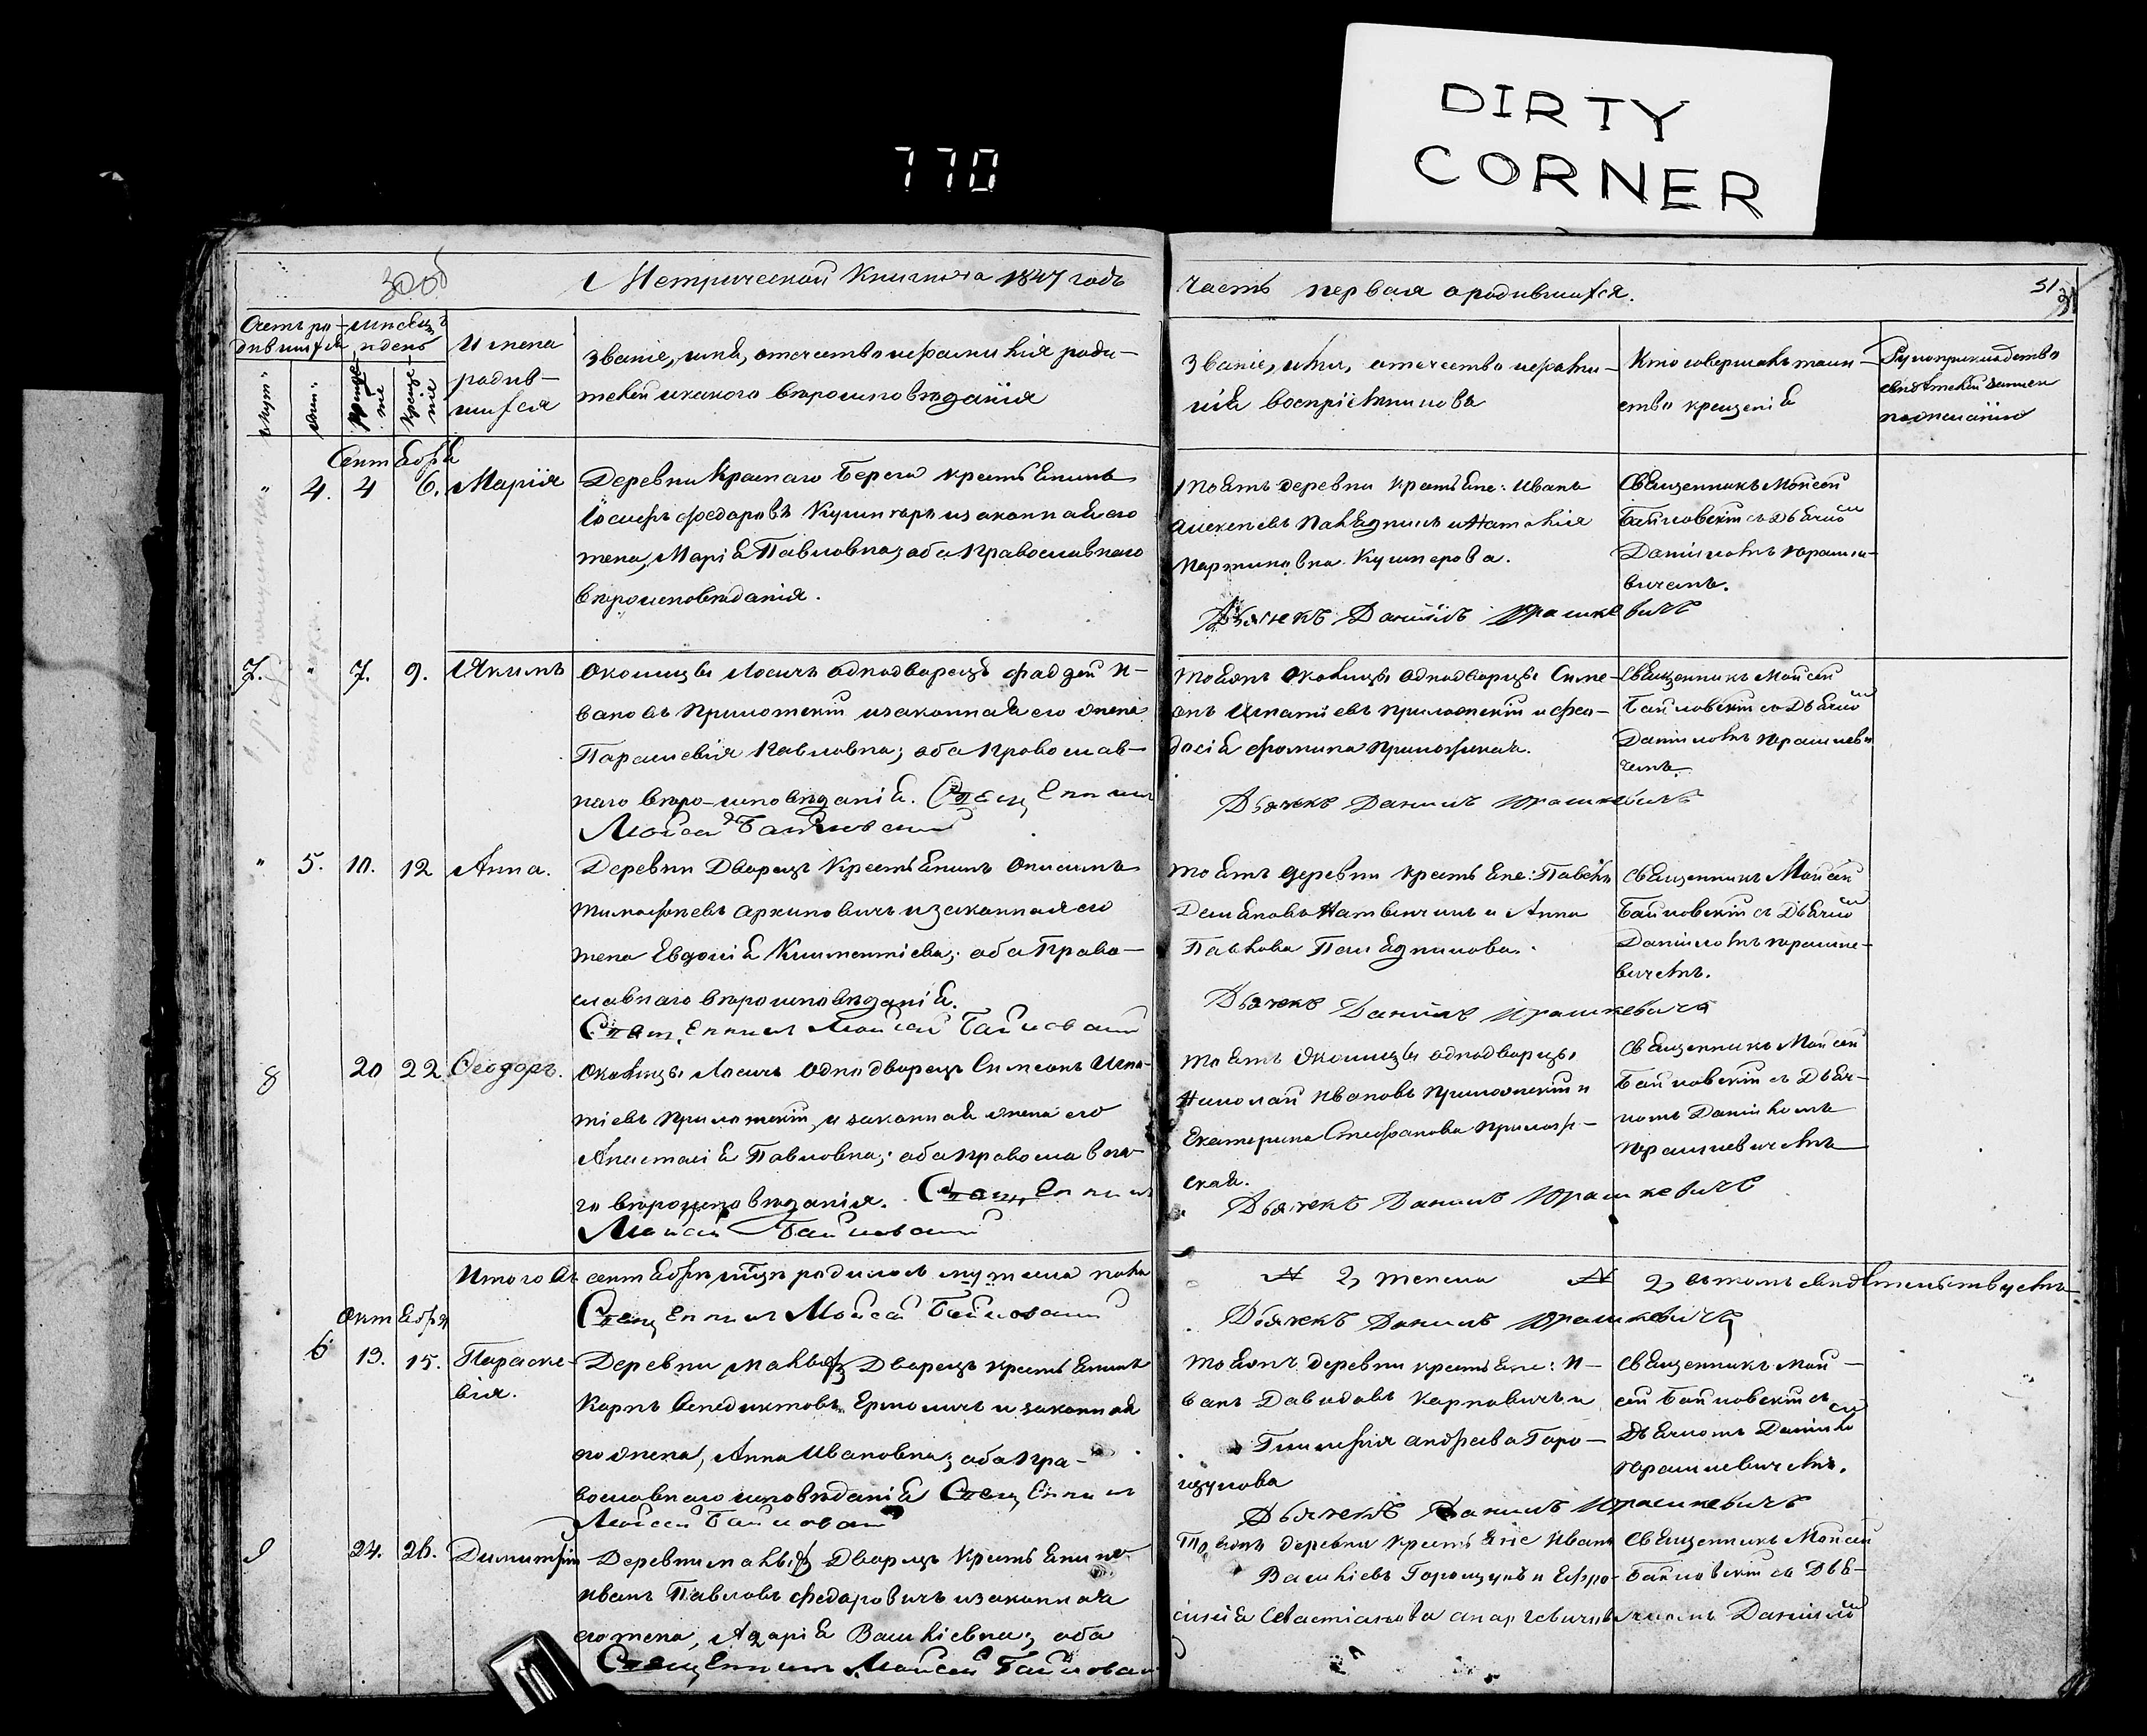 DIRTY
CORNER
770
30об
Метрической Книги на 1847 годъ
часть первая о родившихся.
31
Счетъ ро-
дившихся
мѣсяцъ
и день
Имена
родив-
шихся
Званіе, имя, отечество и фамилія роди-
телей и какого вѣроисповѣданія
Званіе, имя, отечество и фами-
лія воспріемниковъ
Кто совершалъ таин-
ство крещенія
Рукоприкладство
свидѣтелей записи
по желанію
Сентября
" 4. 4 6. Марія
Деревни Краснаго Берега крестьянинъ
Іосифъ Федоровъ Кушнеръ и законная его
жена, Марія Павловна; оба православнаго
вѣроисповѣданія.
тоятъ деревни крестьяне: Иванъ
Алексеевъ и Наталія
Мартиновна Кушнерова.
Дьячекъ Даніилъ Юрашкевичъ
Священникъ Моисей
Байковскій съ Дьячко
Даніиломъ Юрашке-
вичемъ.
7. " 7. 9. Якимъ
Околицы Лосичъ однодворецъ Фаддей И-
вановъ Приложскій и законная его жена
Параскевія Павловна; оба православ-
наго вѣро-исповѣданія. Священникъ
Моисей Байковскій
тоятъ околицы однодворцы Симе-
онъ Игнатіевъ Приложскій и Фео-
досія Фомина Приложская.
Дьячекъ Даніилъ Юрашкевичъ
Священникъ Моисей
Байковскій съ Дьячко
Даніиломъ Юрашкеви
чемъ.
" 5. 10. 12 Анна.
Деревни Дворецъ Крестьянинъ Онисимъ
Тимофеевъ Архиповичъ и законная его
жена Евдокія Климентіева; оба Право-
славнаго вѣроисповѣданія.
Священникъ Моисей Байковскій
тоятъ деревни крестьяне: Павелъ
Демьяновъ и Анна
Павлова
Дьячекъ Даніилъ Юрашкевичъ
Священникъ Моисей
Байковскій съ Дьячко
Даніиломъ Юрашке-
вичемъ.
8 20 22 Ѳеодоръ.
Околицы Лосичъ Однодворецъ Симеонъ Игна-
тіевъ Приложскій, и законная жена его
Анастасія Павловна; оба православна-
го вѣроисповѣданія. Священникъ
Моисей Байковскій
тоятъ Околицы однодворцы
Николай Ивановъ Приложскій и
Екатерина Стефанова Прилож-
ская.
Дьячекъ Даніилъ Юрашкевичъ
Священникъ Моисей
Байковскій съ Дьяч-
комъ Даніиломъ
Юрашкевичемъ
Итого въ сентябрѣ мцѣ родилось мужеска пола
№ 2, женска № 2, въ томъ свидѣтельствуемъ
Священникъ Моисей Байковскій
Дьячекъ Даніилъ Юрашкевичъ
Октября
6 13. 15. Параске-
вія.
Деревни малыхъ Дворецъ крестьянинъ
Карпъ Бенедиктовъ Ермоличъ и законная
его жена, Анна Ивановна; оба пра-
вославнаго исповѣданія Священникъ
Моисей Байковскій
тоятъ деревни крестьяне: И-
ванъ Давидовъ Карповичъ и
Гликерія Андреева Горо-
щукова
Дьячекъ Даніилъ Юрашкевичъ
Священникъ Мои-
сей Байковскій съ
Дьячкомъ Даніило
Юрашкевичемъ.
9 24. 26. Димитрій
Деревни малыхъ Дворецъ Крестьянинъ
Иванъ Павловъ Федоровичъ и законная
его жена, Васильевна; оба
Священникъ Моисей Байковскій
Тоятъ деревни крестьяне Иванъ
Васильевъ Горощукъ и Ефро-
синія Севастіанова
Священникъ Моисей
Байковскій съ Дья-
чкомъ Даніило